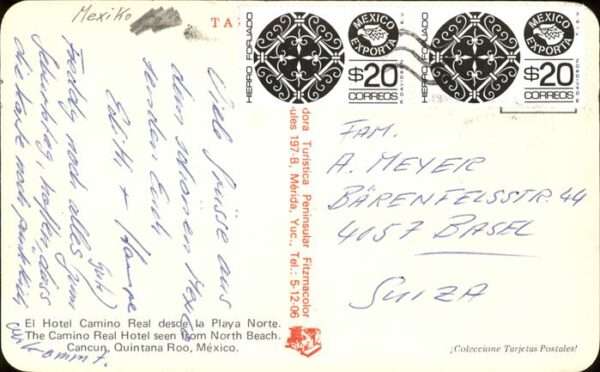 Mexiko
TA
HIERRO FORJADO
MEXICO EXPORTA
$20
CORREOS
HIERRO FORJADO
MEXICO EXPORTA
$20
CORREOS
Viele Grüsse aus
dem schönen Mexico
senden Euch
Edith + Hampe
Freddy noch alles Gute zum
Geburtstag, hoffen dass
die Karte noch pünktlich
ankommt.
dora Turística Peninsular Fitzmacolor
ules 197-B, Mérida, Yuc., Tel.: 5-12-06
FAM.
A. MEYER
BÄRENFELSSTR. 44
4057 BASEL
SUIZA
El Hotel Camino Real desde la Playa Norte.
The Camino Real Hotel seen from North Beach.
Cancun, Quintana Roo, México.
¡Coleccione Tarjetas Postales!